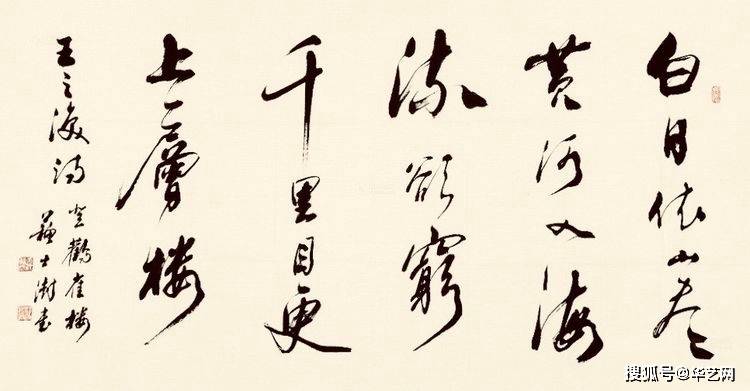 白日依山尽
黄河入海
流欲窮
千里目更
上一層楼
王之涣诗
登鹳雀楼
蘇士澍书
搜狐号@华艺网